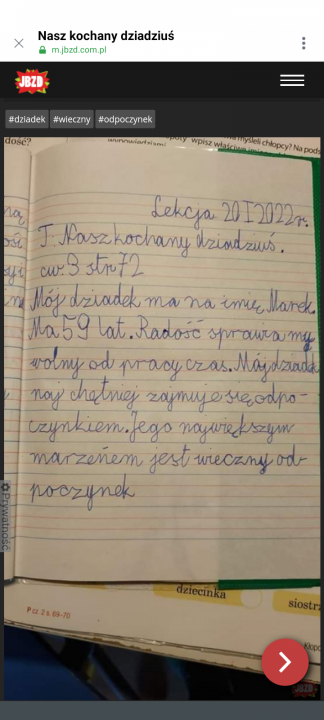 Nasz kochany dziadziuś
m.jbzd.com.pl
JBZD
#dziadek #wieczny #odpoczynek
dość?
wpisz właściwe
myśleli chłopcy? Na pods
Lekcja 20 I 2022r.
T. Nasz kochany dziadziuś.
ćw. 3 str 72
Mój dziadek ma na imię Marek.
Ma 59 lat. Radość sprawia my
wolny od pracy czas. Mój dziadek
naj chętniej zajmuje się odpo-
czynkiem. Jego największym
marzeńem jest wieczny od-
poczynek
Prywatność
dziecinka
siostrz
P cz. 2 s. 69–70
JBZD